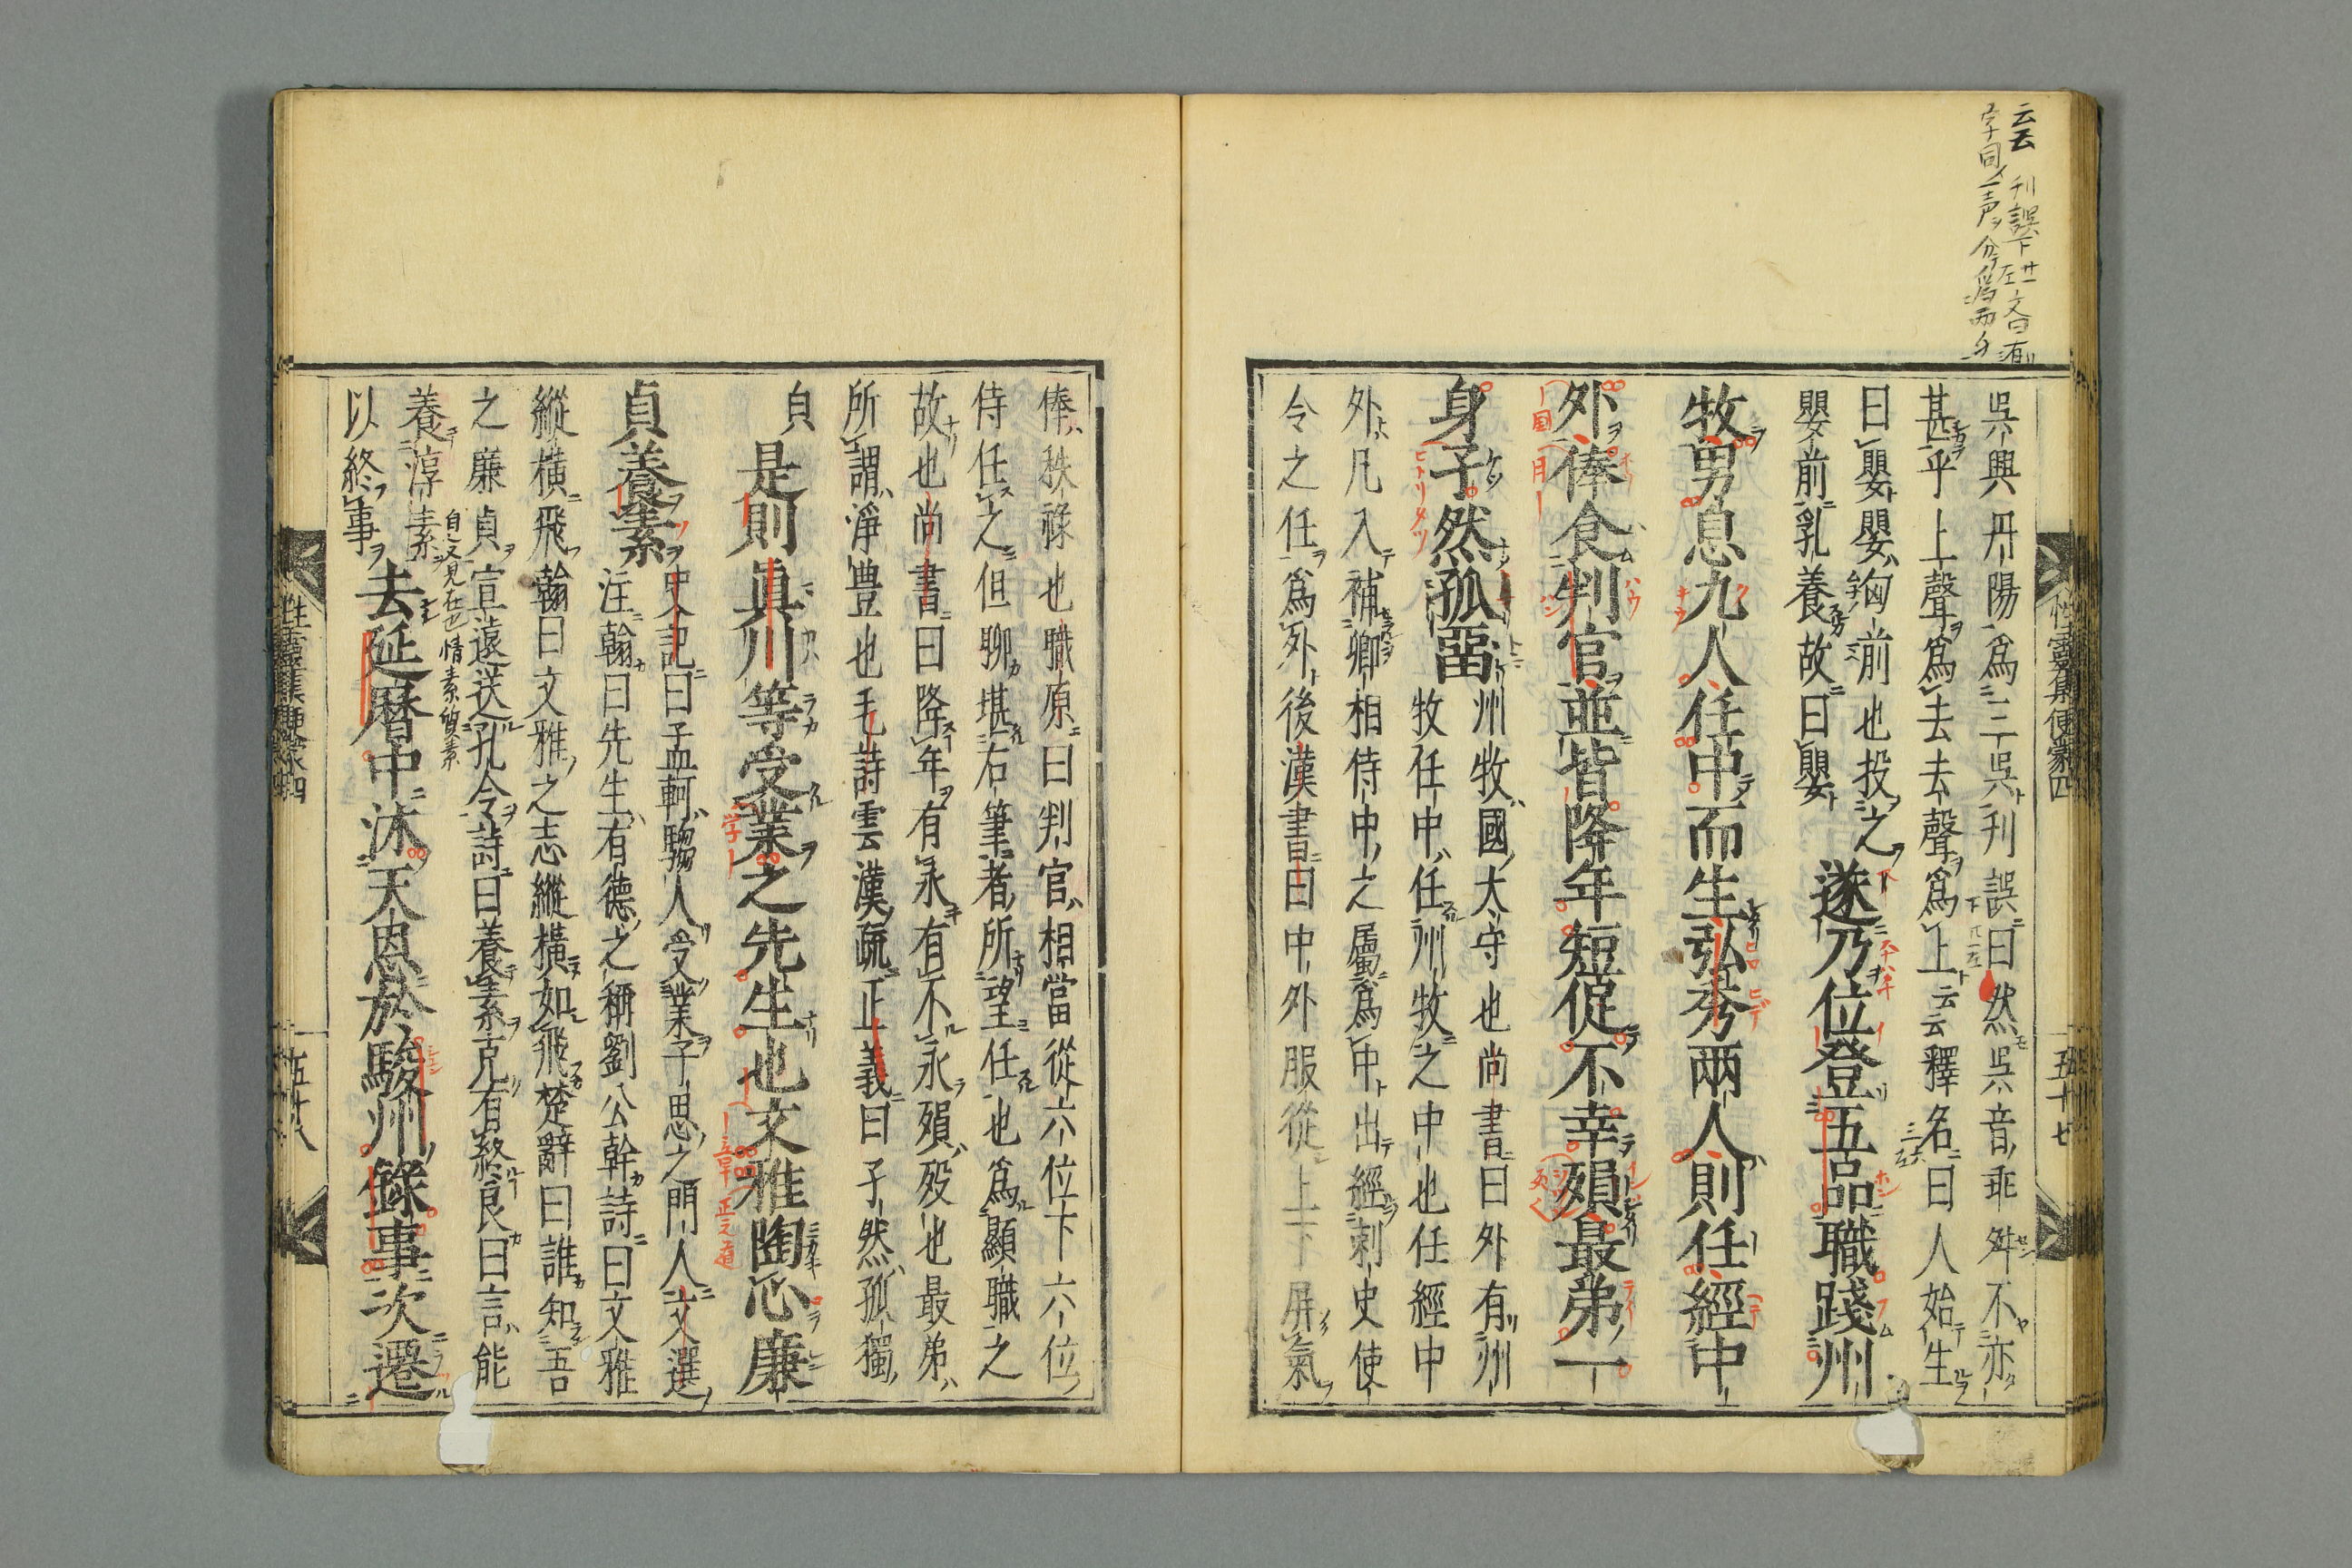 云云 刊誤下廿一左文曰有
字同一声ヲ分爲兩
吳興丹陽爲三吳刊誤曰然吳音乖舛不亦
甚乎上聲爲去去聲爲上云云釋名曰人始生
曰嬰嬰胸前也投之
嬰前乳養故曰嬰
遂乃位登五品職踐州
牧男息九人任中而生弘秀兩人則任經中
外俸食判官並皆降年短促不幸殞最弟一
身孑然孤畱
州牧國大守也尚書曰外有州
牧任中任州牧之中也任經中
外凡入補卿相侍中之屬爲中出經刺史使
令之任爲外後漢書曰中外服從上下屏氣
性靈集便蒙四
五十七
俸秩祿也職原曰判官相當從六位下六位
侍任之但聊堪右筆者所望任也爲顯職之
故也尚書曰降年有永有不永殞歿也最弟
所謂淨豊也毛詩雲漢疏正義曰孑然孤獨
貞
是則眞川等受業之先生也文雅陶心廉
貞養素
史記曰孟軻騶人受業子思之門人文選
注翰曰先生有德之稱劉公幹詩曰文雅
縱橫飛翰曰文雅之志縱橫如飛楚辭曰誰知吾
之廉貞宣遠送孔令詩曰養素克有終良曰言能
養淳素
自又見在也情素質素
以終事
去延曆中沐天恩於駿州錄事次遷
性靈集便蒙四
五十八